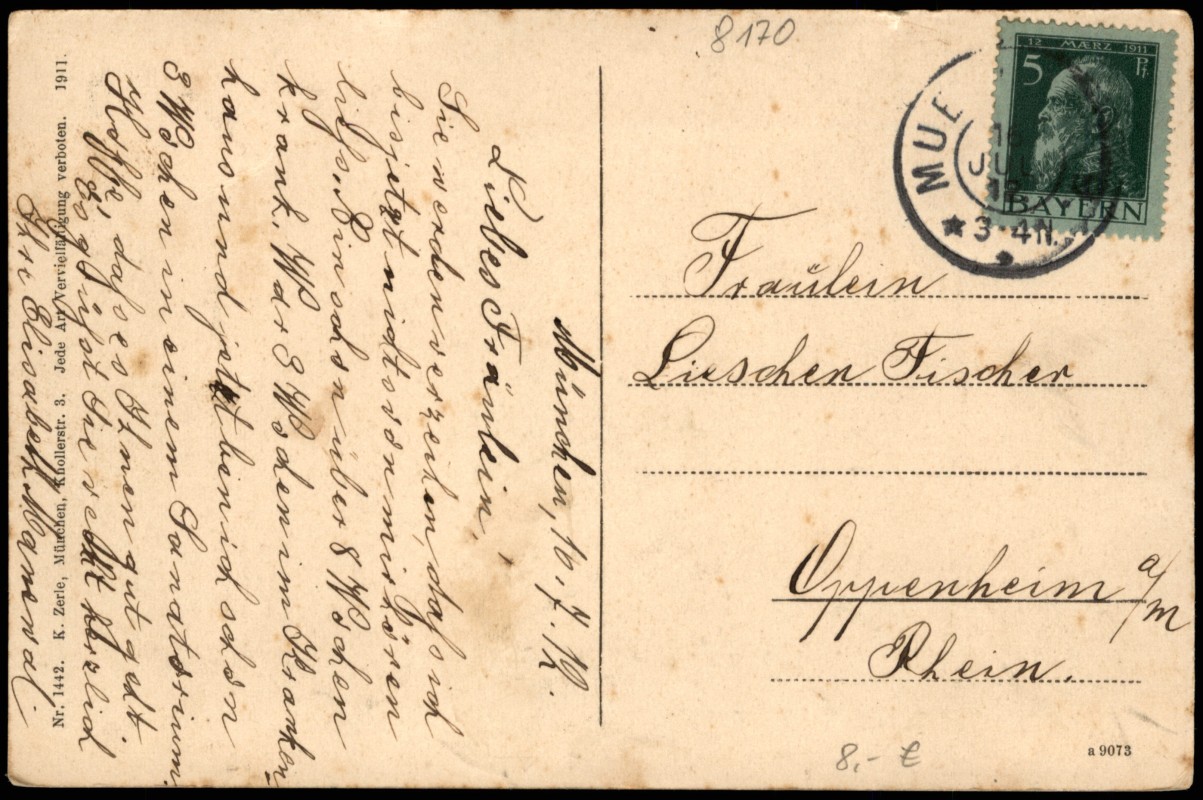 8170
12 MÆRZ 1911
5 Pf.
BAYERN
MUE
16
JUL
12
3-4N.
München, 16. 7. 12.
Liebes Fräulein!
Sie werden verzeihen, daß ich
bis jetzt nichts von mir hören
ließ. Bin schon über 8 Wochen
krank. War 3 Wochen im Kranken
haus und jetzt bin ich schon
3 Wochen in einem Sanatorium.
Hoffe, daß es Ihnen gut geht
Es grüßt Sie recht herzlich
Ihre Elisabeth
Nr. 1442. K. Zerle, München, Knollerstr. 3. Jede Art Vervielfältigung verboten. 1911.
Fräulein
Lieschen Fischer
Oppenheim a/m
Rhein.
8,- €
a 9073